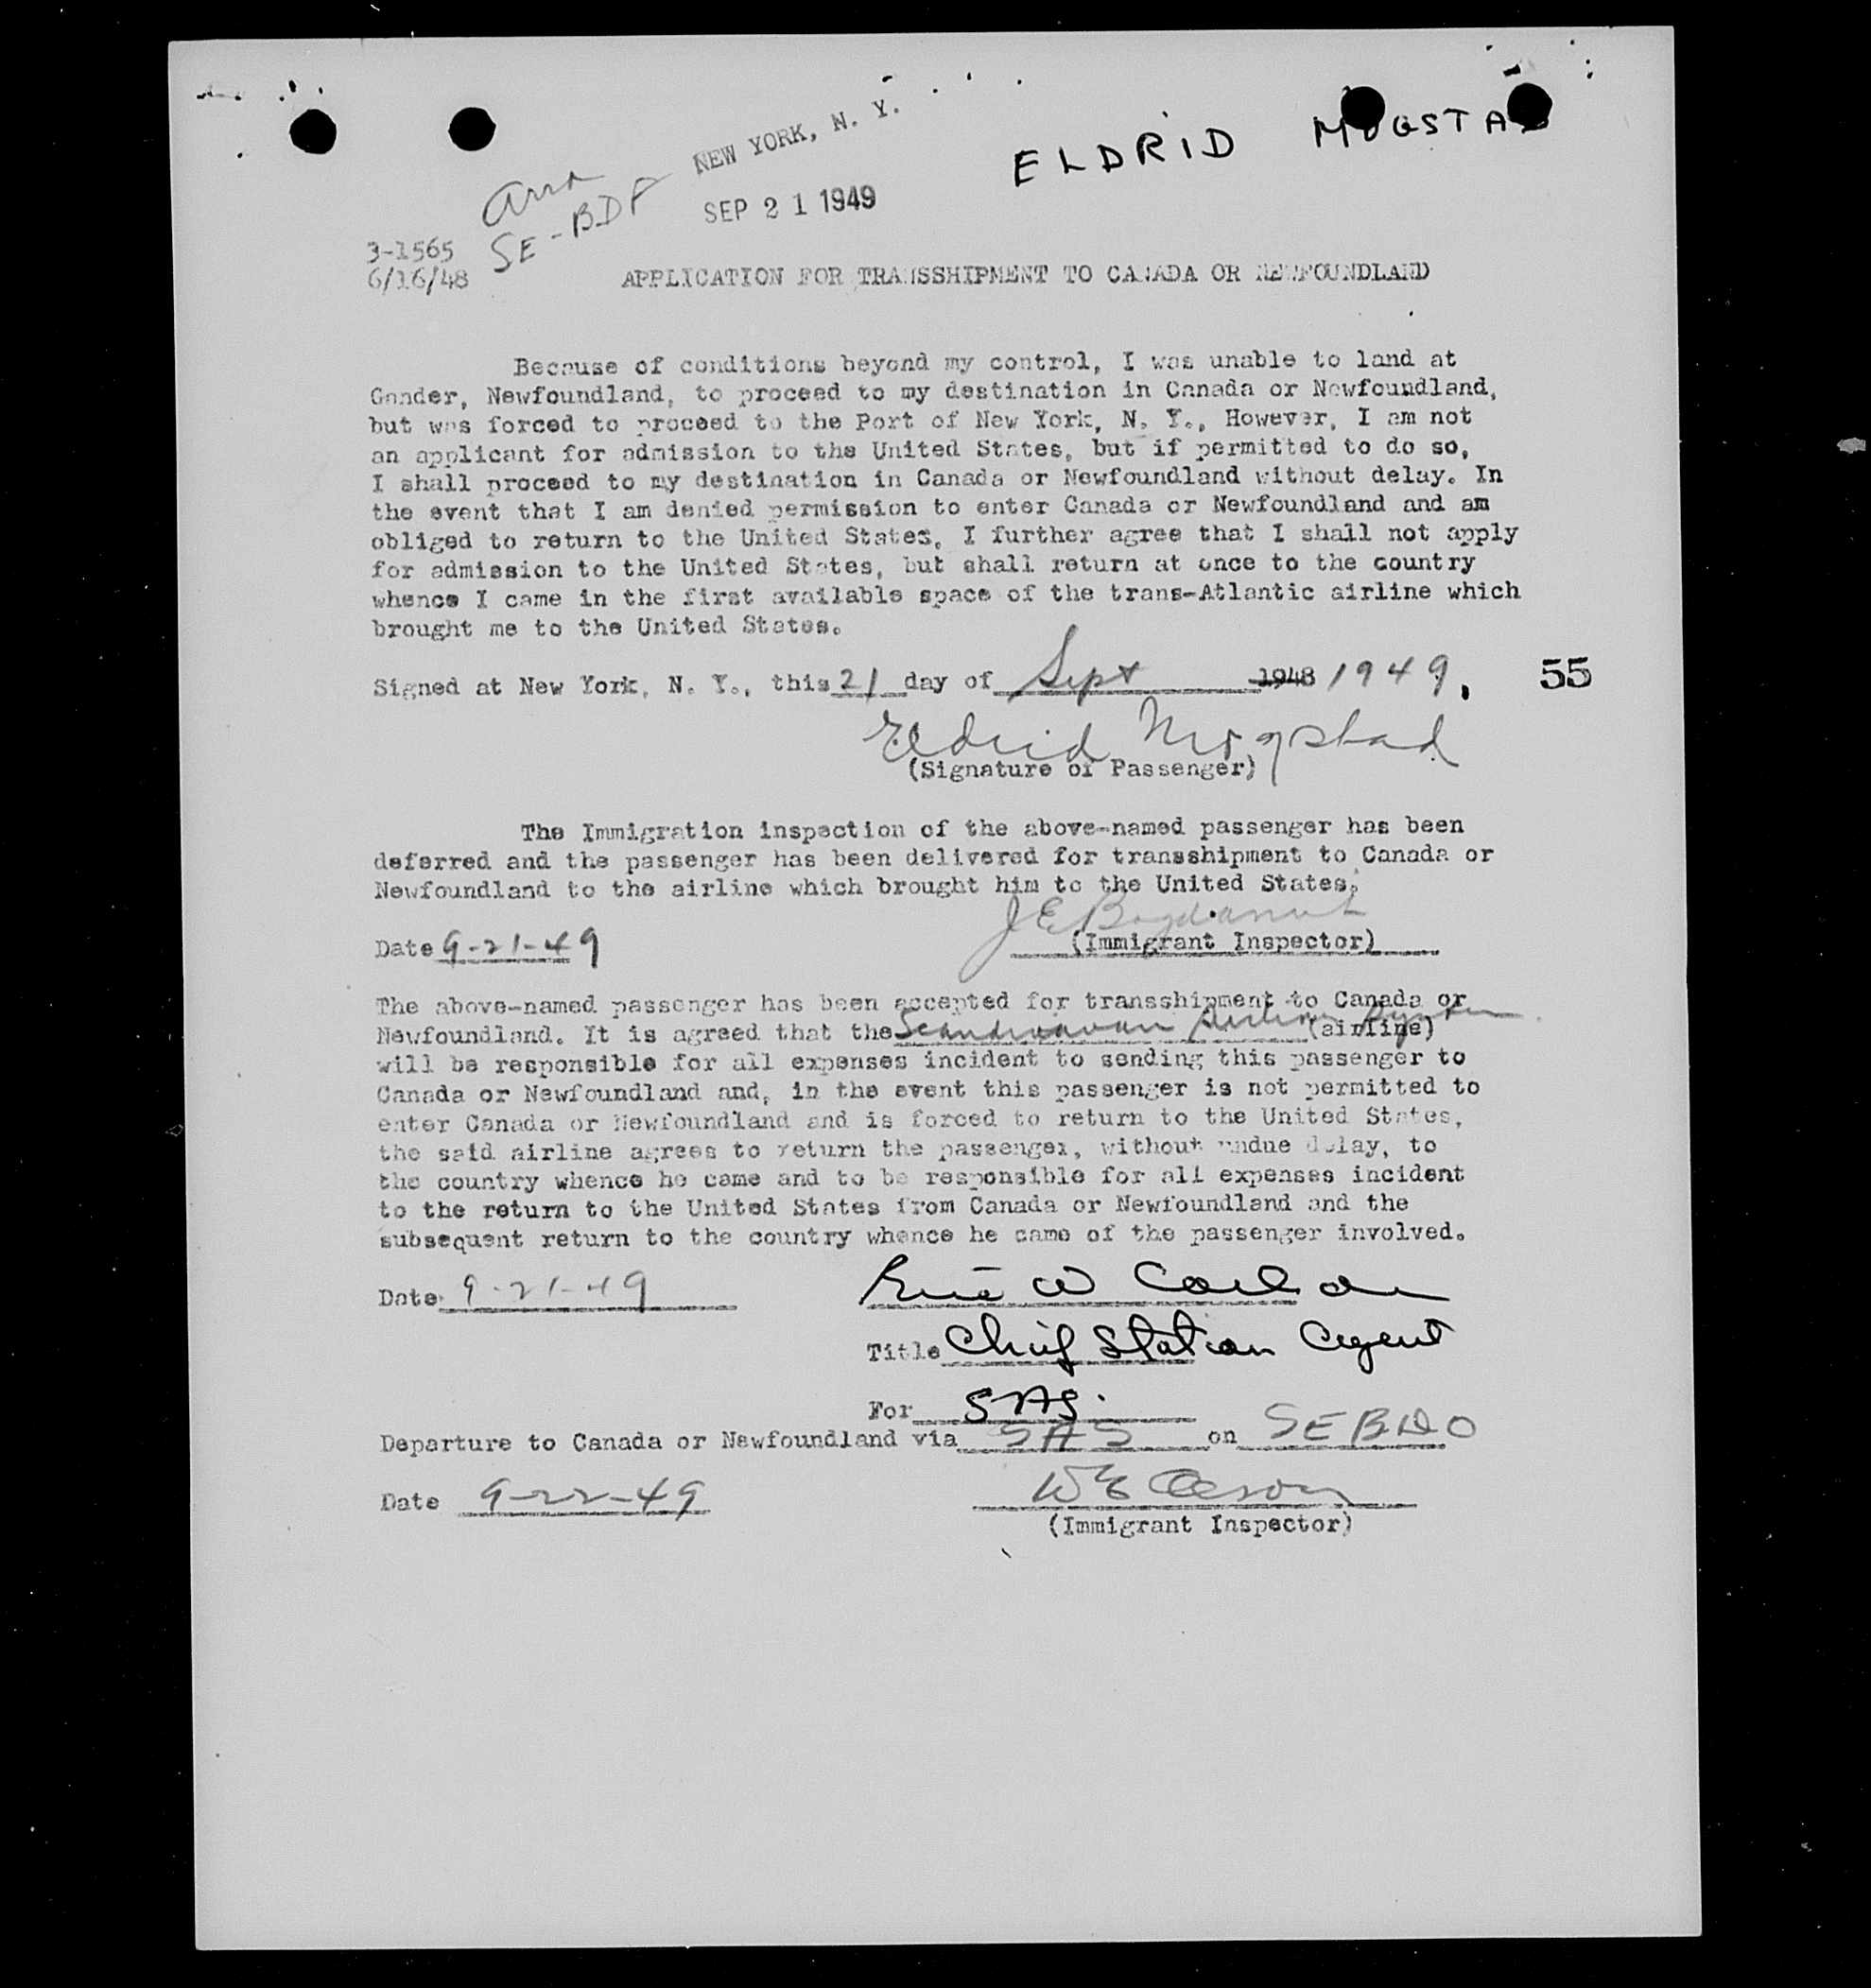 NEW YORK, N. Y.
ELDRID MOGSTAD
SEP 21 1949
Arr
SE-BDF
3-1565
6/16/48
APPLICATION FOR TRANSSHIPMENT TO CANADA OR NEWFOUNDLAND
Because of conditions beyond my control, I was unable to land at
Gander, Newfoundland, to proceed to my destination in Canada or Newfoundland,
but was forced to proceed to the Port of New York, N. Y., However, I am not
an applicant for admission to the United States, but if permitted to do so,
I shall proceed to my destination in Canada or Newfoundland without delay. In
the event that I am denied permission to enter Canada or Newfoundland and am
obliged to return to the United States, I further agree that I shall not apply
for admission to the United States, but shall return at once to the country
whence I came in the first available space of the trans-Atlantic airline which
brought me to the United States.
Signed at New York, N. Y., this 21 day of Sept 1948 1949, 55
Eldrid Mogstad
(Signature of Passenger)
The Immigration inspection of the above-named passenger has been
deferred and the passenger has been delivered for transshipment to Canada or
Newfoundland to the airline which brought him to the United States.
J E
Date 9-21-49 (Immigrant Inspector)
The above-named passenger has been accepted for transshipment to Canada or
Newfoundland. It is agreed that the Scandinavian Airlines System (airline)
will be responsible for all expenses incident to sending this passenger to
Canada or Newfoundland and, in the event this passenger is not permitted to
enter Canada or Newfoundland and is forced to return to the United States,
the said airline agrees to return the passenger, without undue delay, to
the country whence he came and to be responsible for all expenses incident
to the return to the United States from Canada or Newfoundland and the
subsequent return to the country whence he came of the passenger involved.
Date 9-21-49 W
Title Chief Station Agent
For SAS.
Departure to Canada or Newfoundland via SAS on SEBDO
Date 9-22-49
(Immigrant Inspector)